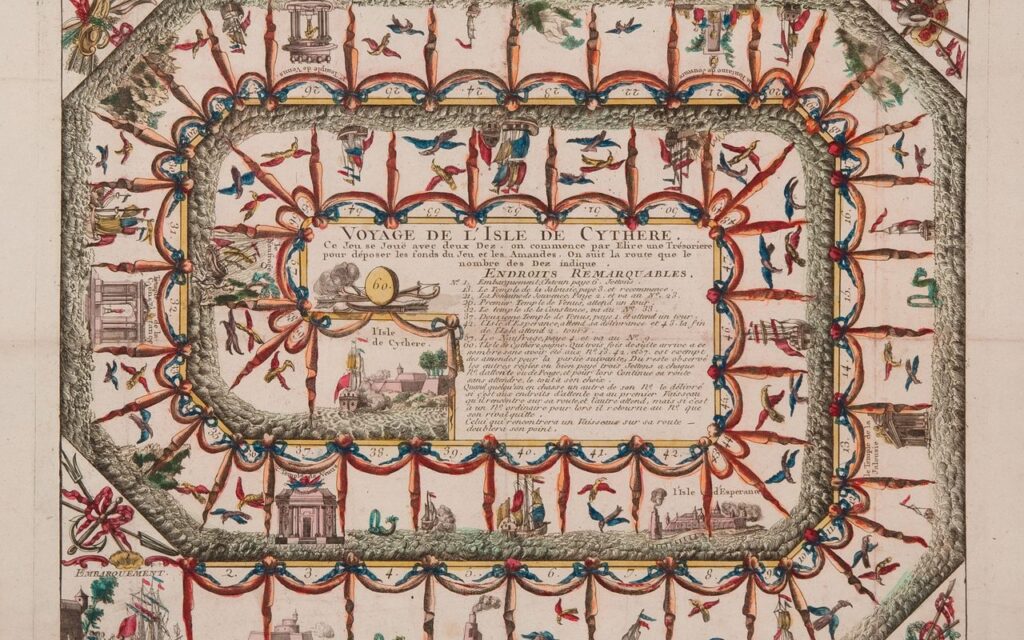 VOYAGE DE L'ISLE DE CYTHERE.
Ce Jeu se Joue avec deux Dez, on commence par Elire une Trésoriere
pour déposer les fonds du Jeu et les Amandes. On suit la route que le
nombre des Dez indique.
ENDROITS REMARQUABLES.
N° 1. Embarquement, l'on en paye 6. Jettons.
13. Le Temple de la Jalousie, paye 3. et recommence.
21. La Fontaine de Jouvence, Paye 2. et va au N°. 23.
26. Premier Temple de Venus, attend un tour.
32. Le Temple de la Constance, va au N°. 33.
37. Deuxieme Temple de Venus, paye 1. et attend un tour.
42. L'Isle d'Esperance, attend sa délivrance et 43. la fin
de l'Isle attend 2. tours.
57. Le Naufrage, paye 4. et va au N°. 9.
60. l'Isle de Cythere gagne. Qui trois fois de suite arrive a ce
nombre sans avoir été aux N°. 13. 42. et 57. est exempt
des amandes pour la partie suivante. Du reste observe
les autres régles ou bien paye trois Jettons a chaque
N°. d'attente ou de Péage, et pour lors Continue sa route
sans attendre, le tout à son choix.
Quand quelqu'un en chasse un autre de son N°. le délivre
si c'est aux endroits d'attente va au premier Vaisseau
qu'il rencontre sur sa route, et l'autre attend, mais si c'est
à un N°. ordinaire pour lors il retourne au N°. que
son rival quitte.
Celui qui rencontrera un Vaisseau sur sa route
doublera son point.
60.
l'Isle
de Cythere.
EMBARQUEMENT.
2. 3. 4. 5. 6. 7. 8. 9.
13.
le Temple de la
Jalousie
16.
21.
Fontaine de Jouvence
22. 23. 24. 25. 26.
Temple de Venus
31.
37. 38. 39. 40. 41. 42.
l'Isle d'Esperance
43.
50. 51. 52. 53. 54.